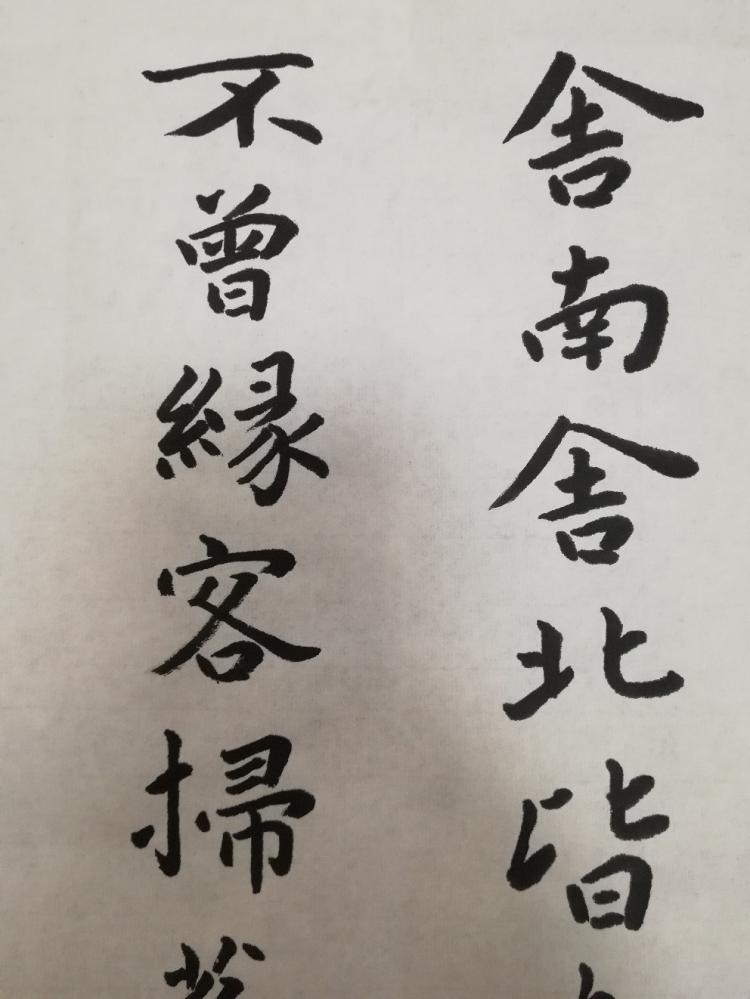 舍南舍北皆
不曾緣客掃